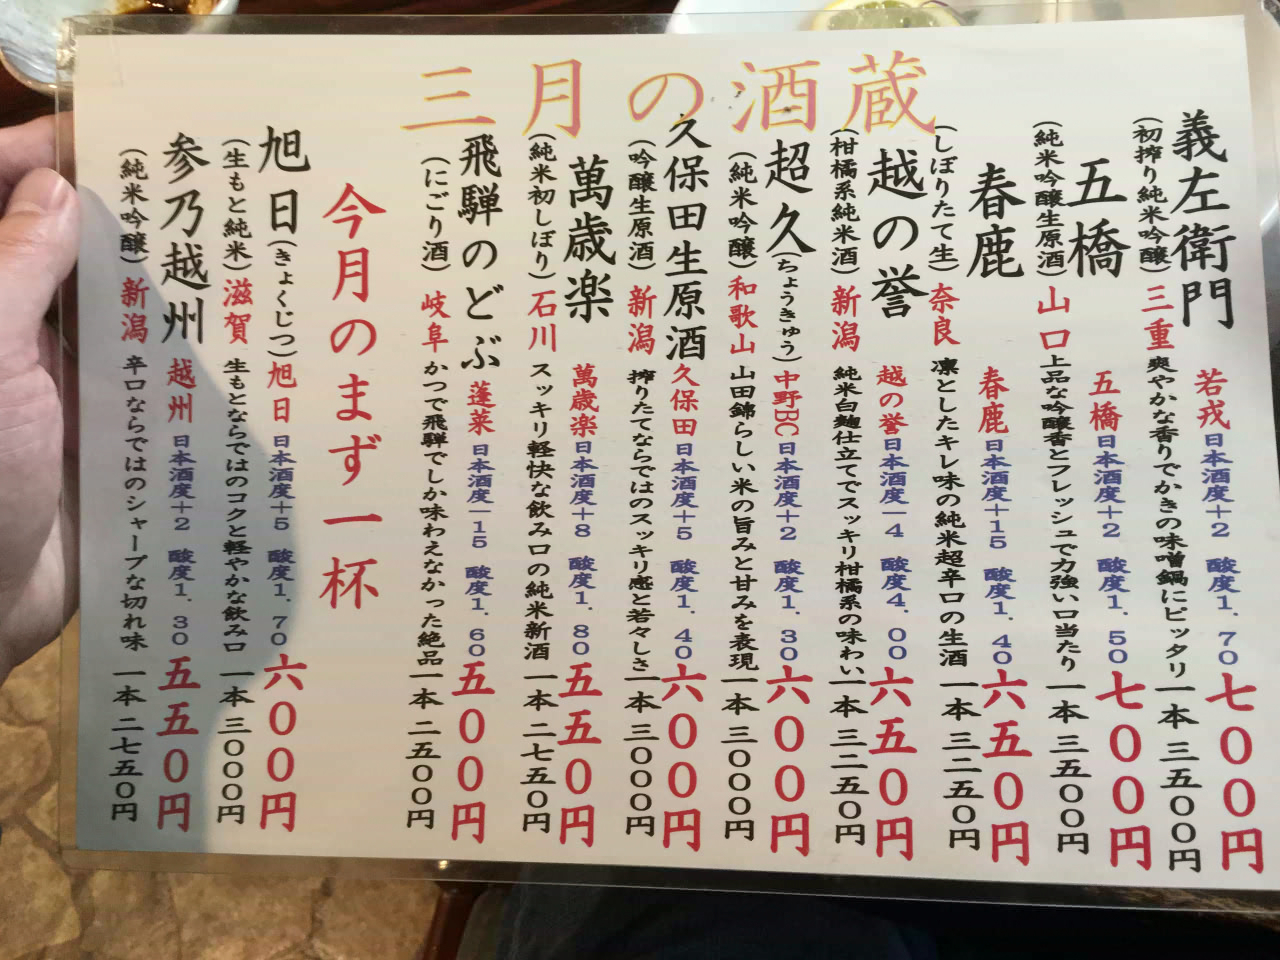 三月の酒蔵
義左衛門 若戎 日本酒度+2 酸度1.70 七〇〇円
(初搾り純米吟醸) 三重 爽やかな香りでかきの味噌鍋にピッタリ 一本 三五〇〇円
五橋 五橋 日本酒度+2 酸度1.50 七〇〇円
(純米吟醸生原酒) 山口 上品な吟醸香とフレッシュで力強い口当たり 一本 三五〇〇円
春鹿 春鹿 日本酒度+15 酸度1.40 六五〇円
(しぼりたて生) 奈良 凛としたキレ味の純米超辛口の生酒 一本 三二五〇円
越の誉 越の誉 日本酒度-4 酸度4.00 六五〇円
(柑橘系純米酒) 新潟 純米白麹仕立てでスッキリ柑橘系の味わい 一本 三二五〇円
超久(ちょうきゅう) 中野BC 日本酒度+2 酸度1.30 六〇〇円
(純米吟醸) 和歌山 山田錦らしい米の旨みと甘みを表現 一本 三〇〇〇円
久保田生原酒 久保田 日本酒度+5 酸度1.40 六〇〇円
(吟醸生原酒) 新潟 搾りたてならではのスッキリ感と若々しさ 一本 三〇〇〇円
萬歳楽 萬歳楽 日本酒度+8 酸度1.80 五五〇円
(純米初しぼり) 石川 スッキリ軽快な飲み口の純米新酒 一本 二七五〇円
飛騨のどぶ 蓬莱 日本酒度-15 酸度1.60 五〇〇円
(にごり酒) 岐阜 かつて飛騨でしか味わえなかった絶品 一本 二五〇〇円
今月のまず一杯
旭日(きょくじつ) 旭日 日本酒度+5 酸度1.70 六〇〇円
(生もと純米) 滋賀 生もとならではのコクと軽やかな飲み口 一本 三〇〇〇円
参乃越州 越州 日本酒度+2 酸度1.30 五五〇円
(純米吟醸) 新潟 辛口ならではのシャープな切れ味 一本 二七五〇円